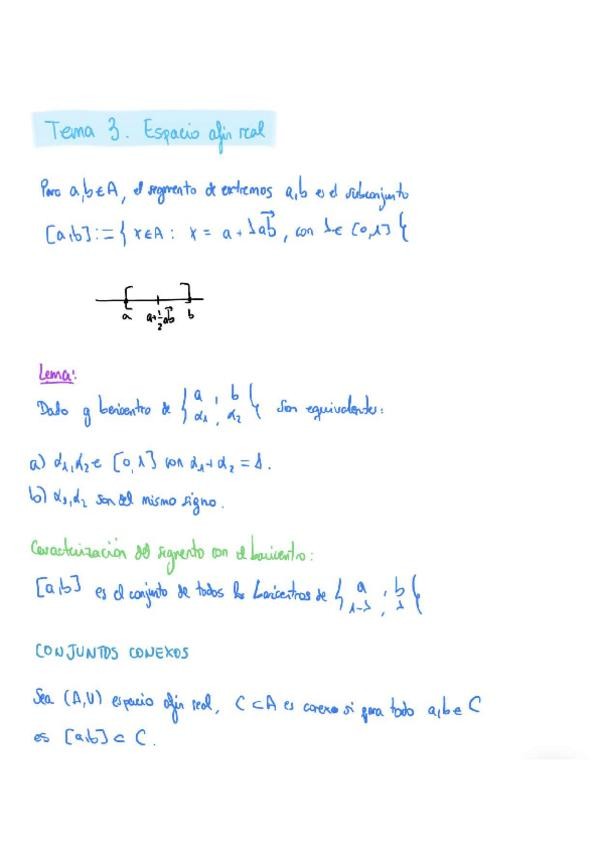 Tema 3. Espacio afín real
Para a,b∈A, el segmento de extremos a,b es el subconjunto
[a,b]:={x∈A: x = a+λab⃗, con λ∈[0,1]}
a a+½ab⃗ b
Lema:
Dado g baricentro de {a, b
α₁, α₂} son equivalentes:
a) α₁,α₂∈[0,1] con α₁+α₂=1.
b) α₁,α₂ son del mismo signo.
Caracterización del segmento con el baricentro:
[a,b] es el conjunto de todos los baricentros de {a, b
1-λ, λ}
CONJUNTOS CONEXOS
Sea (A,V) espacio afín real, C⊂A es conexo si para todo a,b∈C
es [a,b]⊂C.